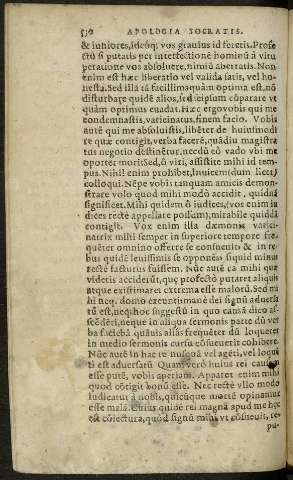 530 APOLOGIA SOCRATIS.
& iuniores, ideoq; vos grauius id feretis. Profe
ctò si putatis per interfectionẽ hominũ à vitu
peratione vos absoluere, nimiũ aberratis. Non
enim est hæc liberatio vel valida satis, vel ho-
nesta. Sed illa tã facillima quàm optima est, nõ
disturbare quidẽ alios, sed seipsum cõparare vt
quàm optimus euadat. Hæc ergo vobis qui me
condemnastis, vaticinatus, finem facio. Vobis
autẽ qui me absoluistis, libẽter de huiusmodi
re quæ contigit, verba facerẽ, quãdiu magistra
tus negotio destinẽtur, necdũ eò vado vbi me
oportet mori. Sed, ô viri, assistite mihi id tem-
pus. Nihil enim prohibet, inuicem (dum licet)
colloqui. Nẽpe vobis tanquam amicis demon-
strare volo quod mihi modò accidit, quidnã
significet. Mihi quidam ô iudices, (vos enim iu
dices rectè appellare possum), mirabile quiddã
contigit. Vox enim illa dæmonis vatici-
natrix mihi semper in superiore tempore fre-
quẽter omnino offerre se consueuit & in re-
bus quidẽ leuissimis se opponẽs siquid minus
rectè facturus fuissem. Nũc autẽ ea mihi quæ
videtis acciderũt, quę profectò putaret aliquis
atque existimaret extrema esse malorũ. Sed mi
hi neq; domo exeunti manè dei signũ aduersa
tũ est, neq; hoc suggestũ in quo causã dico as-
cẽdẽti, neque in aliqua sermonis parte dũ ver
ba facio quãuis aliàs frequẽter dũ loquerer
in medio sermonis cursu cõsueuerit cohibere.
Nũc autẽ in hac re nusquã vel agẽti, vel loquẽ
ti est aduersatũ Quam verò huius rei causam
esse putẽ, vobis aperiam. Apparet enim mihi
quod cõtigit bonũ esse. Nec rectè vllo modo
iudicatur à nobis, quicũque mortẽ opinamur
esse malã. Cuius quidẽ rei magna apud me hęc
est cõiectura, quòd signũ mihi vt cõsueuit, re-
pu-